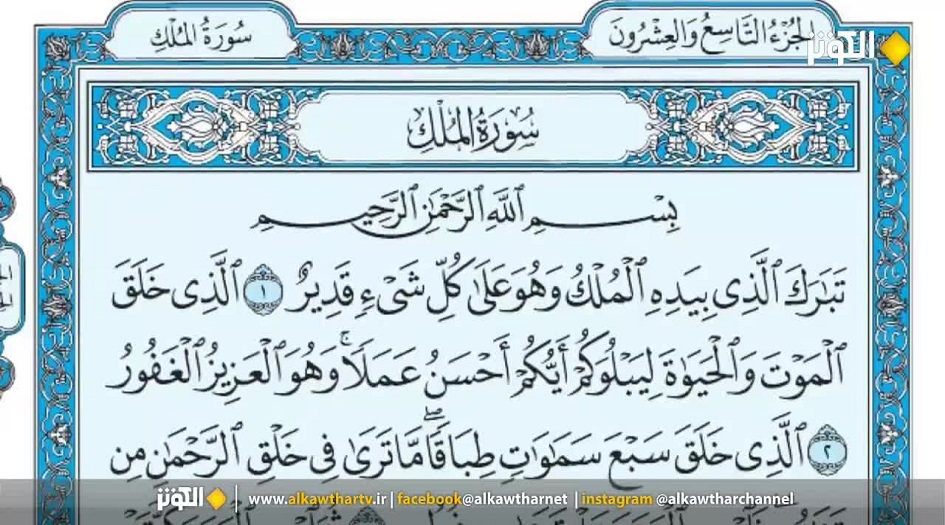 الجُزْءُ التَّاسِعُ وَالعِشْرُونَ
سُورَةُ المُلْكِ
الكوثر
سُورَةُ المُلْكِ
بِسْمِ ٱللَّهِ ٱلرَّحْمَٰنِ ٱلرَّحِيمِ
تَبَٰرَكَ ٱلَّذِى بِيَدِهِ ٱلْمُلْكُ وَهُوَ عَلَىٰ كُلِّ شَىْءٍ قَدِيرٌ ١ ٱلَّذِى خَلَقَ
ٱلْمَوْتَ وَٱلْحَيَوٰةَ لِيَبْلُوَكُمْ أَيُّكُمْ أَحْسَنُ عَمَلًا ۚ وَهُوَ ٱلْعَزِيزُ ٱلْغَفُورُ
٢ ٱلَّذِى خَلَقَ سَبْعَ سَمَٰوَٰتٍ طِبَاقًا ۖ مَّا تَرَىٰ فِى خَلْقِ ٱلرَّحْمَٰنِ مِن
الكوثر | www.alkawthartv.ir | facebook@alkawtharnet | instagram @alkawtharchannel